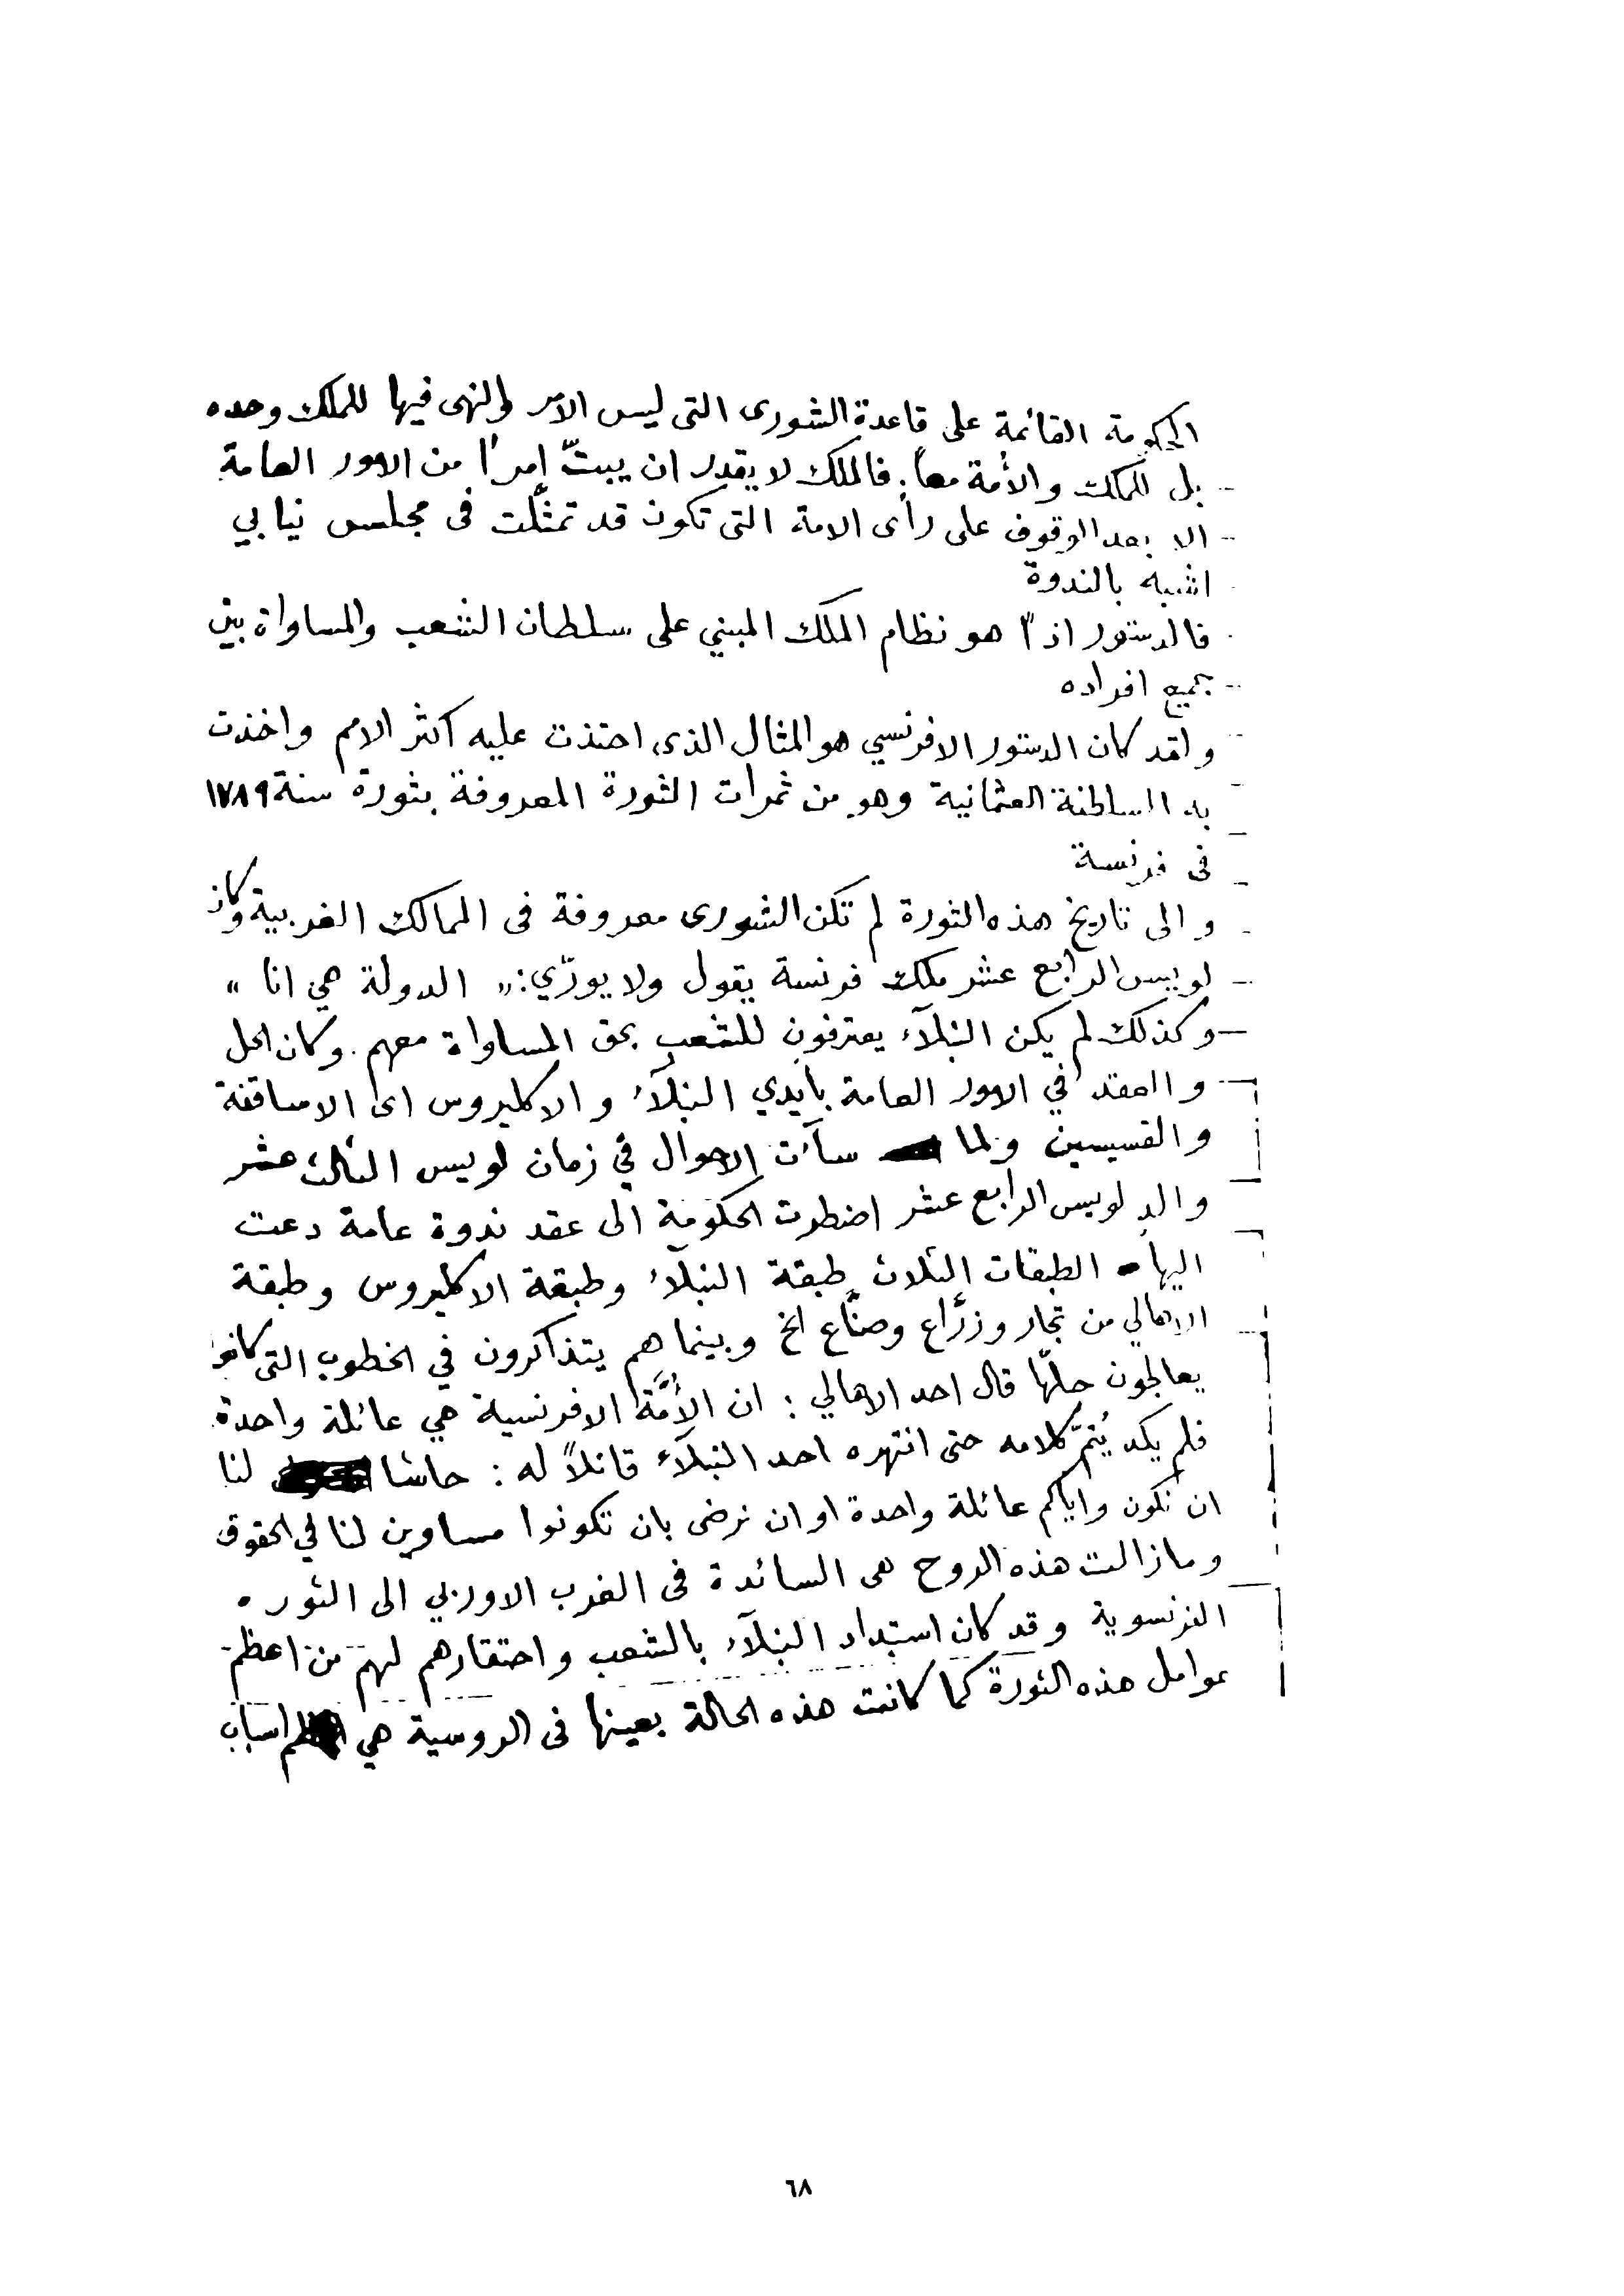 الحكومة القائمة على قاعدة الشورى التى ليس الأمر والنهى فيها للملك وحده
بل للملك والأمة معاً. فالملك لا يقدر ان يبتّ امراً من الامور العامة
الا بعد الوقوف على رأى الامة التى تكون قد تمثّلت فى مجلس نيابي
اشبه بالندوة
فالدستور اذاً هو نظام الملك المبني على سلطان الشعب والمساواة بين
جميع افراده
ولقد كان الدستور الافرنسي هو المثال الذى احتذت عليه اكثر الامم واخذت
به السلطنة العثمانية وهو من ثمرات الثورة المعروفة بثورة سنة ١٧٨٩
فى فرنسة
والى تاريخ هذه الثورة لم تكن الشورى معروفة فى الممالك الغربية وكان
لويس الرابع عشر ملك فرنسة يقول ولا يورّي: „ الدولة هي انا „
وكذلك لم يكن النبلآء يعترفون للشعب بحق المساواة معهم. وكان الحل
والعقد في الامور العامة بأيدي النبلآء والاكليروس اى الاساقفة
والقسيسين ولما سآءت الاحوال في زمان لويس الثالث عشر
والد لويس الرابع عشر اضطرت الحكومة الى عقد ندوة عامة دعت
اليها الطبقات الثلاث طبقة النبلآء وطبقة الاكليروس وطبقة
الاهالي من تجار وزرّاع وصنّاع الخ وبينما هم يتذاكرون في الخطوب التى كانوا
يعالجون حلّها قال احد الاهالي : ان الأُمَّة الافرنسية هي عائلة واحدة.
فلم يكد يُتمّ كلامه حتى انتهره احد النبلآء قائلاً له : حاشا لنا
ان نكون واياكم عائلة واحدة او ان نرضى بان تكونوا مساوين لنا في الحقوق
وما زالت هذه الروح هى السائدة فى الغرب الاوربي الى الثوره
الفرنسوية وقد كان استبداد النبلآء بالشعب واحتقارهم لهم من اعظم
عوامل هذه الثورة كما كانت هذه الحالة بعينها فى الروسية هي اسباب
٦٨